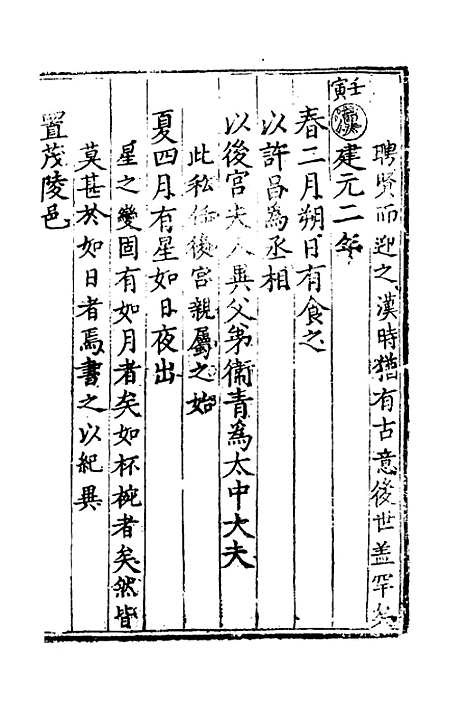 聘賢而迎之漢時猶有古意後世盖罕矣
壬寅
漢
建元二年
春二月朔日有食之
以許昌為丞相
以後宮夫人異父弟衛青為太中大夫
此私任後宮親屬之始
夏四月有星如日夜出
星之變固有如月者矣如杯椀者矣然皆
莫甚於如日者焉書之以紀異
置茂陵邑